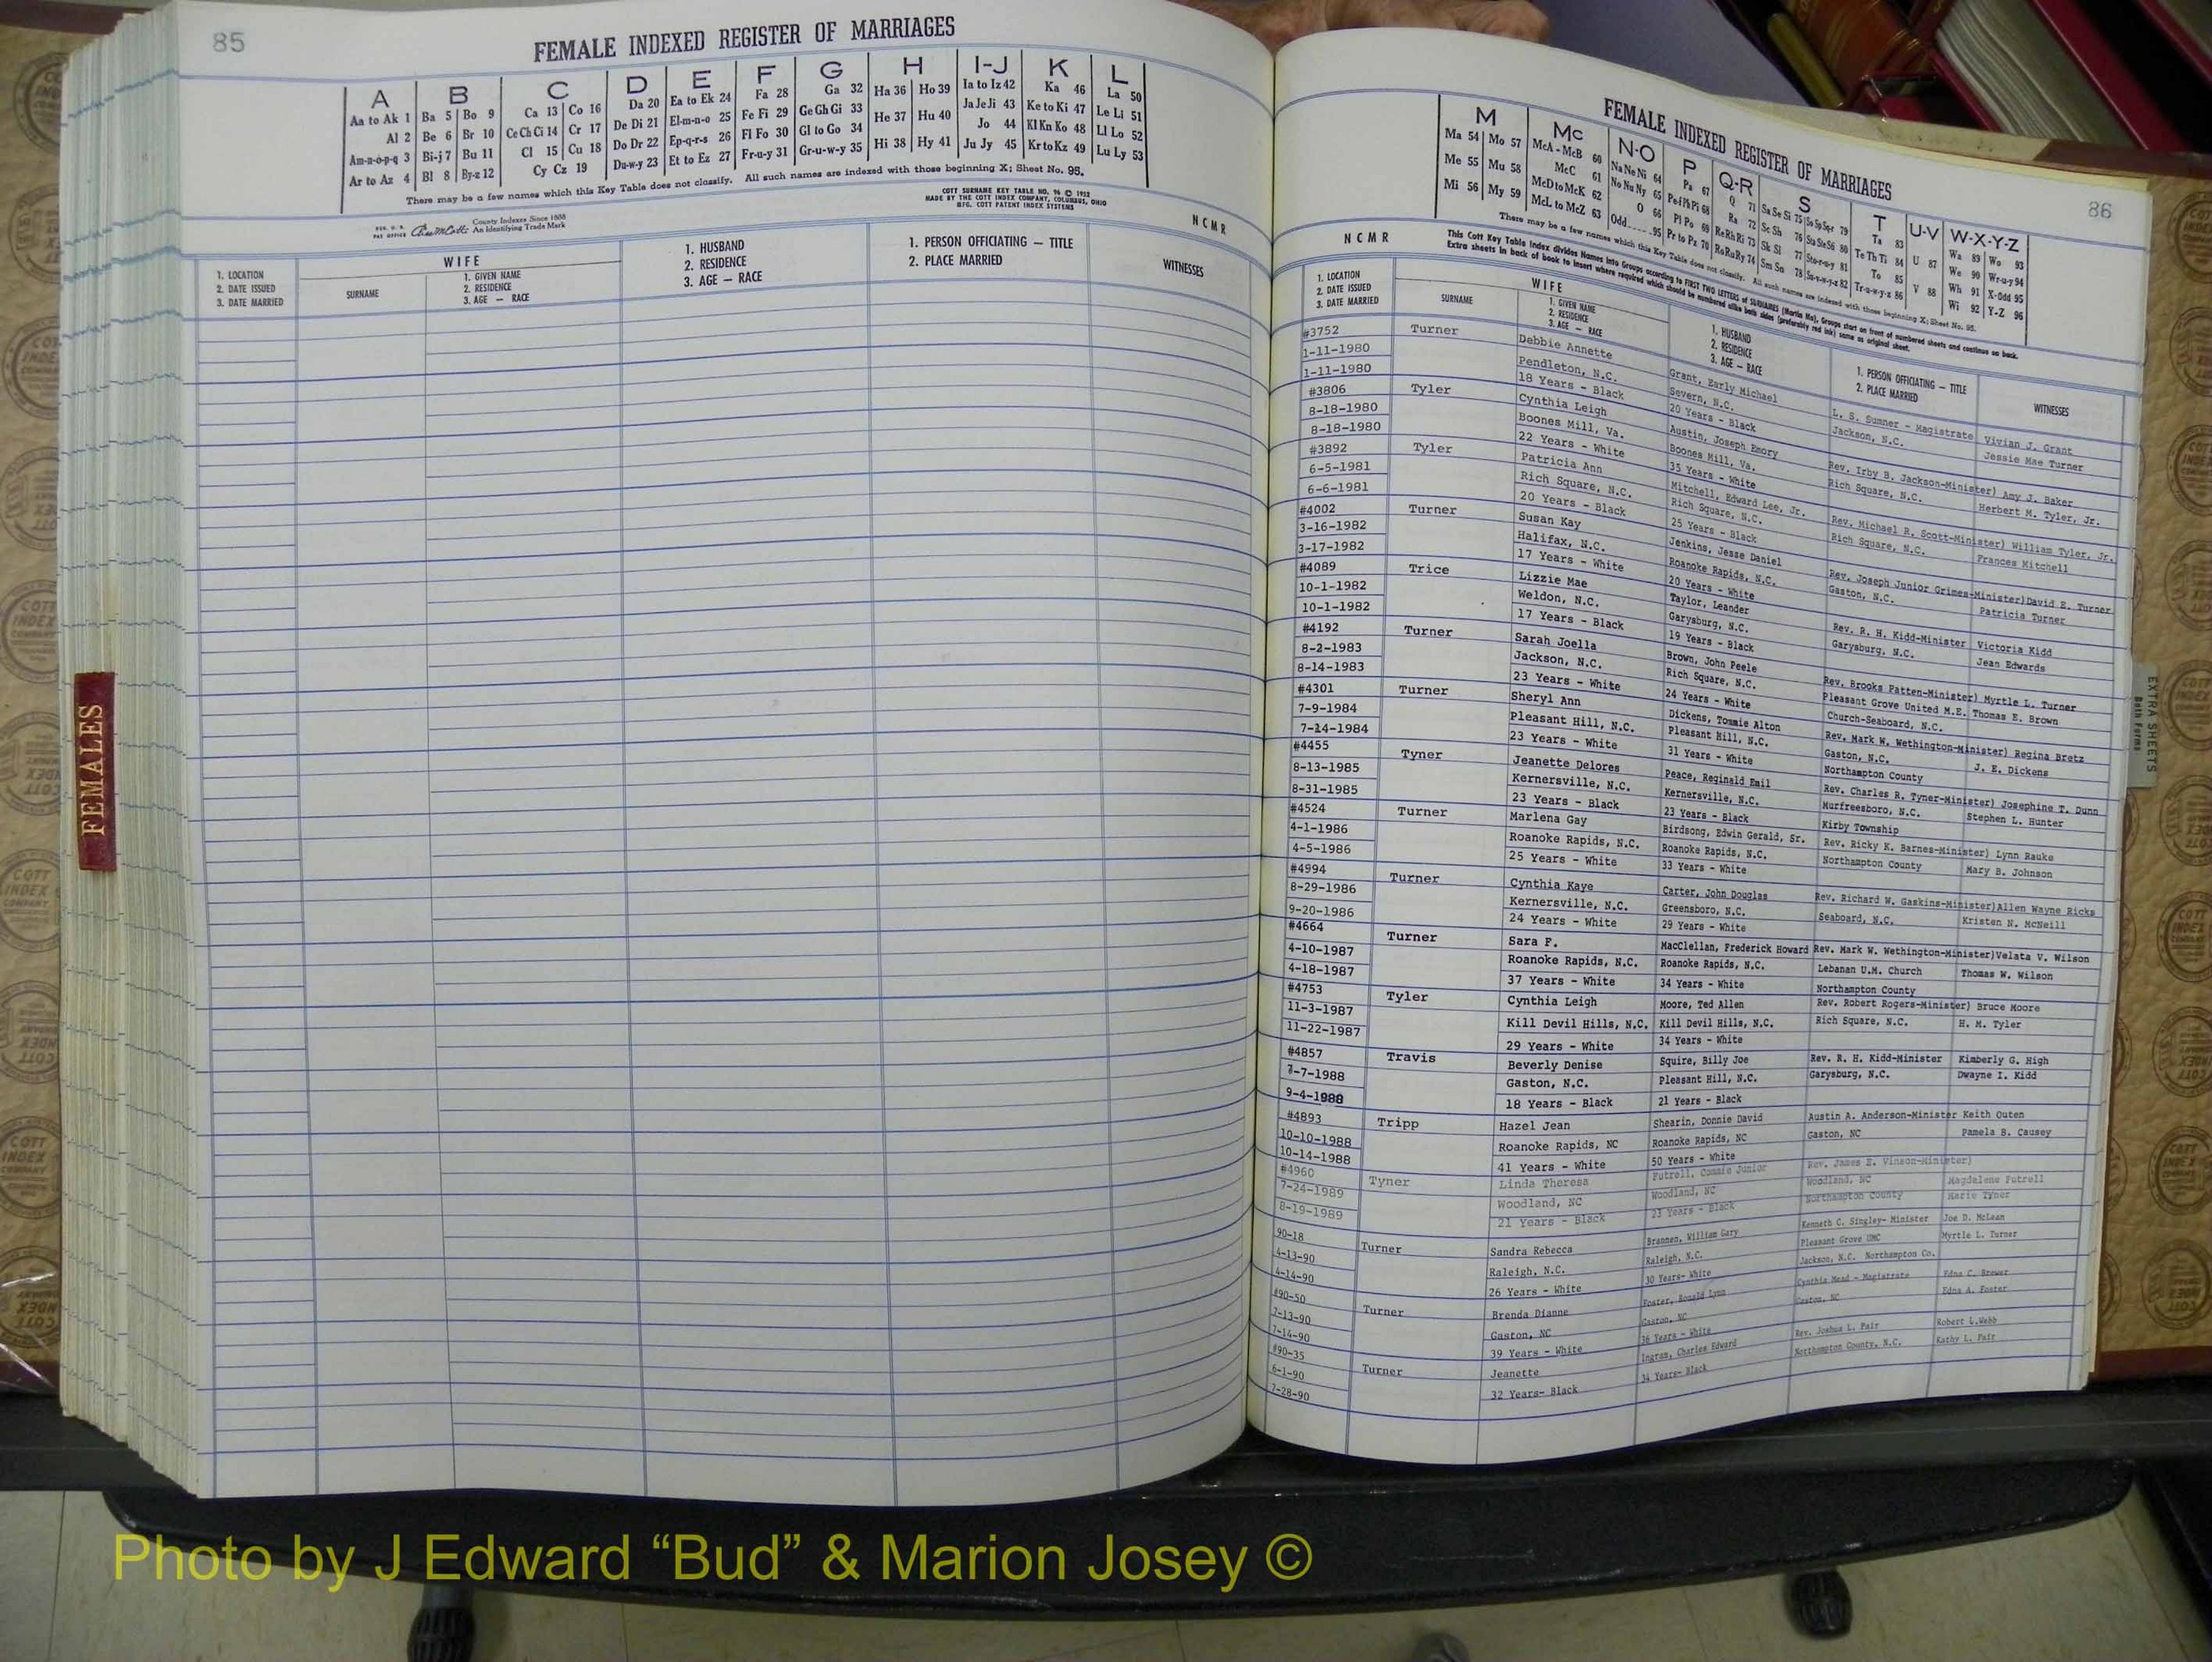 85
FEMALE INDEXED REGISTER OF MARRIAGES
A B C D E F G H I-J K L
Aa to Ak 1 Ba 5 Bo 9 Ca 13 Co 16 Da 20 Ea to Ek 24 Fa 28 Ga 32 Ha 36 Ho 39 Ia to Iz 42 Ka 46 La 50
Al 2 Be 6 Br 10 Ce Ch Ci 14 Cr 17 De Di 21 El-m-n-o 25 Fe Fi 29 Ge Gh Gi 33 He 37 Hu 40 Ja Je Ji 43 Ke to Ki 47 Le Li 51
Am-n-o-p-q 3 Bi-j 7 Bu 11 Cl 15 Cu 18 Do Dr 22 Ep-q-r-s 26 Fl Fo 30 Gl to Go 34 Hi 38 Hy 41 Jo 44 Kl Kn Ko 48 Ll Lo 52
Ar to Az 4 Bl 8 By-z 12 Cy Cz 19 Du-w-y 23 Et to Ez 27 Fr-u-y 31 Gr-u-w-y 35 Ju Jy 45 Kr to Kz 49 Lu Ly 53
There may be a few names which this Key Table does not classify. All such names are indexed with those beginning X; Sheet No. 95.
COTT SURNAME KEY TABLE NO. 96 © 1952
MADE BY THE COTT INDEX COMPANY, COLUMBUS, OHIO
MFG. COTT PATENT INDEX SYSTEMS
REG. U. S. PAT OFFICE
County Indexes Since 1888
An Identifying Trade Mark
NCMR
1. LOCATION
2. DATE ISSUED
3. DATE MARRIED
WIFE
SURNAME
1. GIVEN NAME
2. RESIDENCE
3. AGE — RACE
1. HUSBAND
2. RESIDENCE
3. AGE — RACE
1. PERSON OFFICIATING — TITLE
2. PLACE MARRIED
WITNESSES
FEMALES
FEMALE INDEXED REGISTER OF MARRIAGES
86
M Mc N-O P Q-R S T U-V W-X-Y-Z
Ma 54 Mo 57 McA - McB 60 Na Ne Ni 64 Pa 67 Q 71 Sa Se Si 75 So Sp Sq-r 79 Ta 83 U 87 Wa 89 Wo 93
Me 55 Mu 58 McC 61 No Nu Ny 65 Pe-f Ph Pi 68 Ra 72 Sc Sh 76 Sta Ste S6 80 Te Th Ti 84 V 88 We 90 Wr-u-y 94
Mi 56 My 59 McD to McK 62 O 66 Pl Po 69 Re Rh Ri 73 Sk Sl 77 Sto-r-u-y 81 To 85 Wh 91 X-Odd 95
McL to McZ 63 Odd 95 Pr to Pz 70 Ro Ru Ry 74 Sm Sn 78 Su-v-w-y-z 82 Tr-u-w-y-z 86 Wi 92 Y-Z 96
There may be a few names which this Key Table does not classify. All such names are indexed with those beginning X; Sheet No. 95.
This Cott Key Table Index divides Names into Groups according to FIRST TWO LETTERS of SURNAMES (Martin Ma). Groups start on front of numbered sheets and continue on back.
Extra sheets in back of book to insert where required which should be numbered alike both sides (preferably red ink) same as original sheet.
NCMR
1. LOCATION
2. DATE ISSUED
3. DATE MARRIED
WIFE
SURNAME
1. GIVEN NAME
2. RESIDENCE
3. AGE — RACE
1. HUSBAND
2. RESIDENCE
3. AGE — RACE
1. PERSON OFFICIATING — TITLE
2. PLACE MARRIED
WITNESSES
#3752 Turner Debbie Annette Grant, Early Michael L. S. Sumner - Magistrate Vivian J. Grant
1-11-1980 Pendleton, N.C. Severn, N.C. Jackson, N.C. Jessie Mae Turner
1-11-1980 18 Years - Black 20 Years - Black
#3806 Tyler Cynthia Leigh Austin, Joseph Emory Rev. Irby B. Jackson-Minister) Amy J. Baker
8-18-1980 Boones Mill, Va. Boones Mill, Va. Rich Square, N.C. Herbert M. Tyler, Jr.
8-18-1980 22 Years - White 35 Years - White
#3892 Tyler Patricia Ann Mitchell, Edward Lee, Jr. Rev. Michael R. Scott-Minister) William Tyler, Jr.
6-5-1981 Rich Square, N.C. Rich Square, N.C. Rich Square, N.C. Frances Mitchell
6-6-1981 20 Years - Black 25 Years - Black
#4002 Turner Susan Kay Jenkins, Jesse Daniel Rev. Joseph Junior Grimes-Minister) David E. Turner
3-16-1982 Halifax, N.C. Roanoke Rapids, N.C. Gaston, N.C. Patricia Turner
3-17-1982 17 Years - White 20 Years - White
#4089 Trice Lizzie Mae Taylor, Leander Rev. R. H. Kidd-Minister Victoria Kidd
10-1-1982 Weldon, N.C. Garysburg, N.C. Garysburg, N.C. Jean Edwards
10-1-1982 17 Years - Black 19 Years - Black
#4192 Turner Sarah Joella Brown, John Peele Rev. Brooks Patten-Minister) Myrtle L. Turner
8-2-1983 Jackson, N.C. Rich Square, N.C. Pleasant Grove United M.E. Thomas E. Brown
8-14-1983 23 Years - White 24 Years - White Church-Seaboard, N.C.
#4301 Turner Sheryl Ann Dickens, Tommie Alton Rev. Mark W. Wethington-Minister) Regina Bretz
7-9-1984 Pleasant Hill, N.C. Pleasant Hill, N.C. Gaston, N.C. J. E. Dickens
7-24-1984 23 Years - White 31 Years - White Northampton County
#4455 Tyner Jeanette Delores Peace, Reginald Emil Rev. Charles R. Tyner-Minister) Josephine T. Dunn
8-13-1985 Kernersville, N.C. Kernersville, N.C. Murfreesboro, N.C. Stephen L. Hunter
8-31-1985 23 Years - Black 23 Years - Black Kirby Township
#4524 Turner Marlena Gay Birdsong, Edwin Gerald, Sr. Rev. Ricky K. Barnes-Minister) Lynn Rauke
4-1-1986 Roanoke Rapids, N.C. Roanoke Rapids, N.C. Northampton County Mary B. Johnson
4-5-1986 25 Years - White 33 Years - White
#4994 Turner Cynthia Kaye Carter, John Douglas Rev. Richard W. Gaskins-Minister) Allen Wayne Ricks
8-29-1986 Kernersville, N.C. Greensboro, N.C. Seaboard, N.C. Kristen N. McNeill
9-20-1986 24 Years - White 29 Years - White
#4664 Turner Sara F. MacClellan, Frederick Howard Rev. Mark W. Wethington-Minister) Velata V. Wilson
4-10-1987 Roanoke Rapids, N.C. Roanoke Rapids, N.C. Lebanan U.M. Church Thomas W. Wilson
4-18-1987 37 Years - White 34 Years - White Northampton County
#4753 Tyler Cynthia Leigh Moore, Ted Allen Rev. Robert Rogers-Minister) Bruce Moore
11-3-1987 Kill Devil Hills, N.C. Kill Devil Hills, N.C. Rich Square, N.C. H. M. Tyler
11-22-1987 29 Years - White 34 Years - White
#4857 Travis Beverly Denise Squire, Billy Joe Rev. R. H. Kidd-Minister Kimberly G. High
7-7-1988 Gaston, N.C. Pleasant Hill, N.C. Garysburg, N.C. Dwayne I. Kidd
9-4-1988 18 Years - Black 21 Years - Black
#4893 Tripp Hazel Jean Shearin, Donnie David Austin A. Anderson-Minister Keith Outen
10-10-1988 Roanoke Rapids, NC Roanoke Rapids, NC Gaston, NC Pamela B. Causey
10-14-1988 41 Years - White 50 Years - White
#4960 Tyner Linda Theresa Futrell, Commie Junior Rev. James E. Vinson-Minister)
7-24-1989 Woodland, NC Woodland, NC Woodland, NC Magdalene Futrell
8-19-1989 21 Years - Black 23 Years - Black Northampton County Marie Tyner
90-18 Turner Sandra Rebecca Brannen, William Gary Kenneth C. Singley- Minister Joe D. McLean
4-13-90 Raleigh, N.C. Raleigh, N.C. Pleasant Grove UMC Myrtle L. Turner
4-14-90 26 Years - White 30 Years- White Jackson, N.C. Northampton Co.
#90-50 Turner Brenda Dianne Foster, Ronald Lynn Cynthia Mead - Magistrate Edna C. Brewer
7-13-90 Gaston, NC Gaston, NC Gaston, NC Edna A. Foster
7-14-90 39 Years - White 36 Years - White
#90-35 Turner Jeanette Ingram, Charles Edward Rev. Joshua L. Pair Robert L. Webb
6-1-90 32 Years- Black 34 Years- Black Northampton County, N.C. Kathy L. Pair
7-28-90
EXTRA SHEETS
Both Forms
Photo by J Edward “Bud” & Marion Josey ©